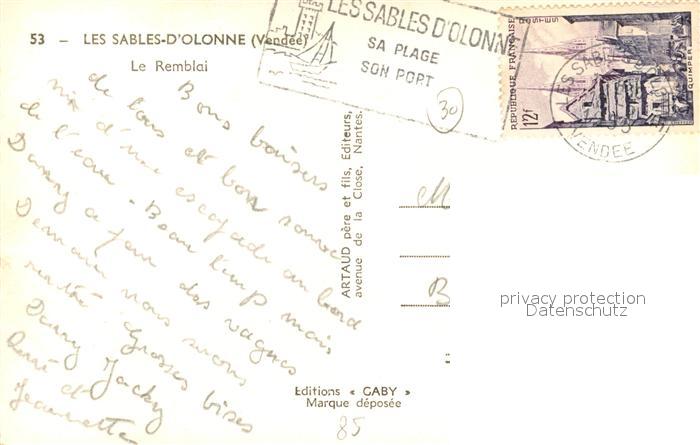 53 — LES SABLES-D'OLONNE (Vendée)
Le Remblai
LES SABLES D'OLONNE
SA PLAGE
SON PORT
30
RÉPUBLIQUE FRANÇAISE
POSTES
12f
QUIMPER
LES SABLES
VENDEE
Bons baisers
de tous et bon souve
nir d'une escapade au bord
de l'eau. Beau temps mais
Danny a peur des vagues
Demain nous serons
rentré Grosses bises
Danny Jacky
René et
Jeannette
ARTAUD père et fils, Editeurs,
avenue de la Close, Nantes.
M
B
privacy protection
Datenschutz
Editions « GABY »
Marque déposée
85